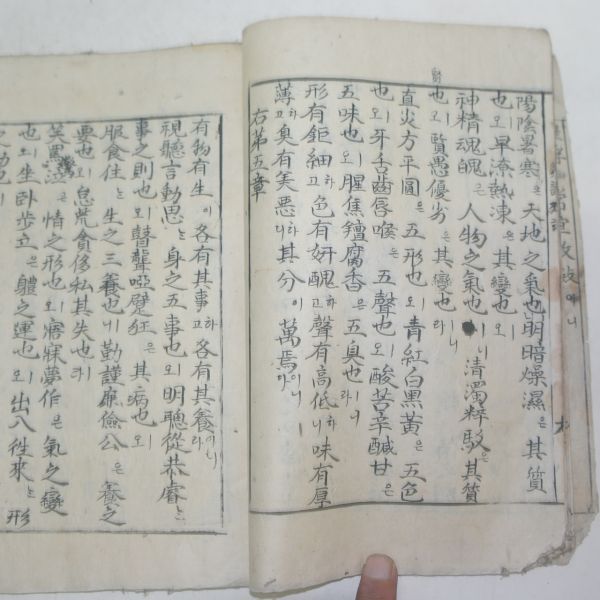 陽陰暑寒은天地之氣也明暗燥濕은其質
也오旱潦熱凍은其變也오
神精魂魄은人物之氣也니淸濁粹駁은其質
也오賢愚優劣은其變也라
直炎方平圓은五形也오靑紅白黑黃은五色
也오牙舌齒唇喉은五聲也오酸苦辛醎甘은
五味也오腥焦羶腐香은五臭也라
形有鉅細하고色有姸醜하고聲有高低하니味有厚
薄하고臭有美惡하니其分이萬焉이니라
右第五章
有物有生이各有其事하고各有其養이니라
視聽言動思는身之五事也오明聰從恭睿는
事之則也오瞽聾啞躄狂은其病也오
服食住는生之三養也니勤謹廉儉公은養之
要也오怠荒貪侈私其失也라
笑은情之形也오寤寐夢作은氣之變
也오坐臥步立은軆之運也오出入徃來는形